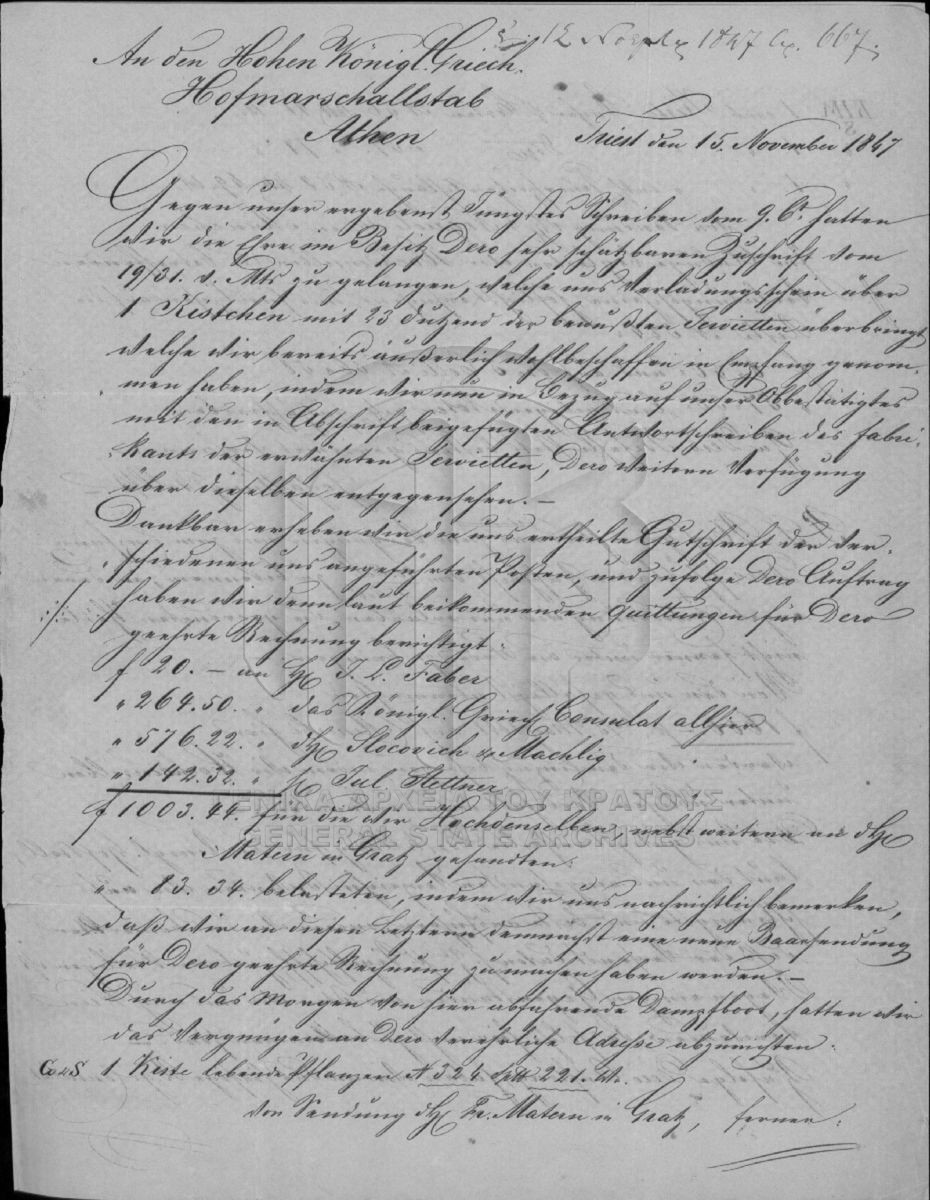 12 1847 667.
An den Hohen Königl. Griech.
Hofmarschallstab
Athen
Triest den 15. November 1847
Gegen unser ergebenst Jüngstes Schreiben vom 9. hatten
wir die Ehre im Besitz Dero sehr schätzbaren Zuschrift vom
19/31. v. Mts zu gelangen, welche uns Verladungsschein über
1 Kistchen mit 23 Dutzend der bewußten Servietten überbringt
welche wir bereits äußerlich wohlbeschaffen in Empfang genom¬
men haben, indem wir nun in Bezug auf unser Obbestätigtes
mit den in Abschrift beigefügten Antwortschreiben des Fabri¬
kants der erwähnten Servietten, Dero weitern Verfügung
über dieselben entgegensehen. –
Dankbar ersehen wir die uns ertheilte Gutschrift der ver¬
schiedenen uns angeführten Posten, und zufolge Dero Auftrag
haben wir denn laut beikommenden Quittungen für Dero
geehrte Rechnung berichtigt:
f 20. – an H J. L. Faber
" 264.50. " das Königl. Griech Consulat allhier
" 576.22. " dH Slocovich & Machlig
" 142.32. " H Jul Stettner
f 1003.44. für die wir Hochdenselben, nebst weitern an dH
Matern in Gratz gesandten:
" 83. 34. belasteten, indem wir uns nachrichtlich bemerken,
daß wir an diesen Letztern demnächst eine neue Baarsendung
für Dero geehrte Rechnung zu machen haben werden. –
Durch das Morgen von hier abfahrende Dampfboot, hatten wir
das Vergnügen an Dero verehrliche Adresse abzurichten:
1 Kiste lebende Pflanzen 324 221.
von Sendung dH Fr. Matern in Gratz, ferner:
ΓΕΝΙΚΑ ΑΡΧΕΙΑ ΤΟΥ ΚΡΑΤΟΥΣ
GENERAL STATE ARCHIVES